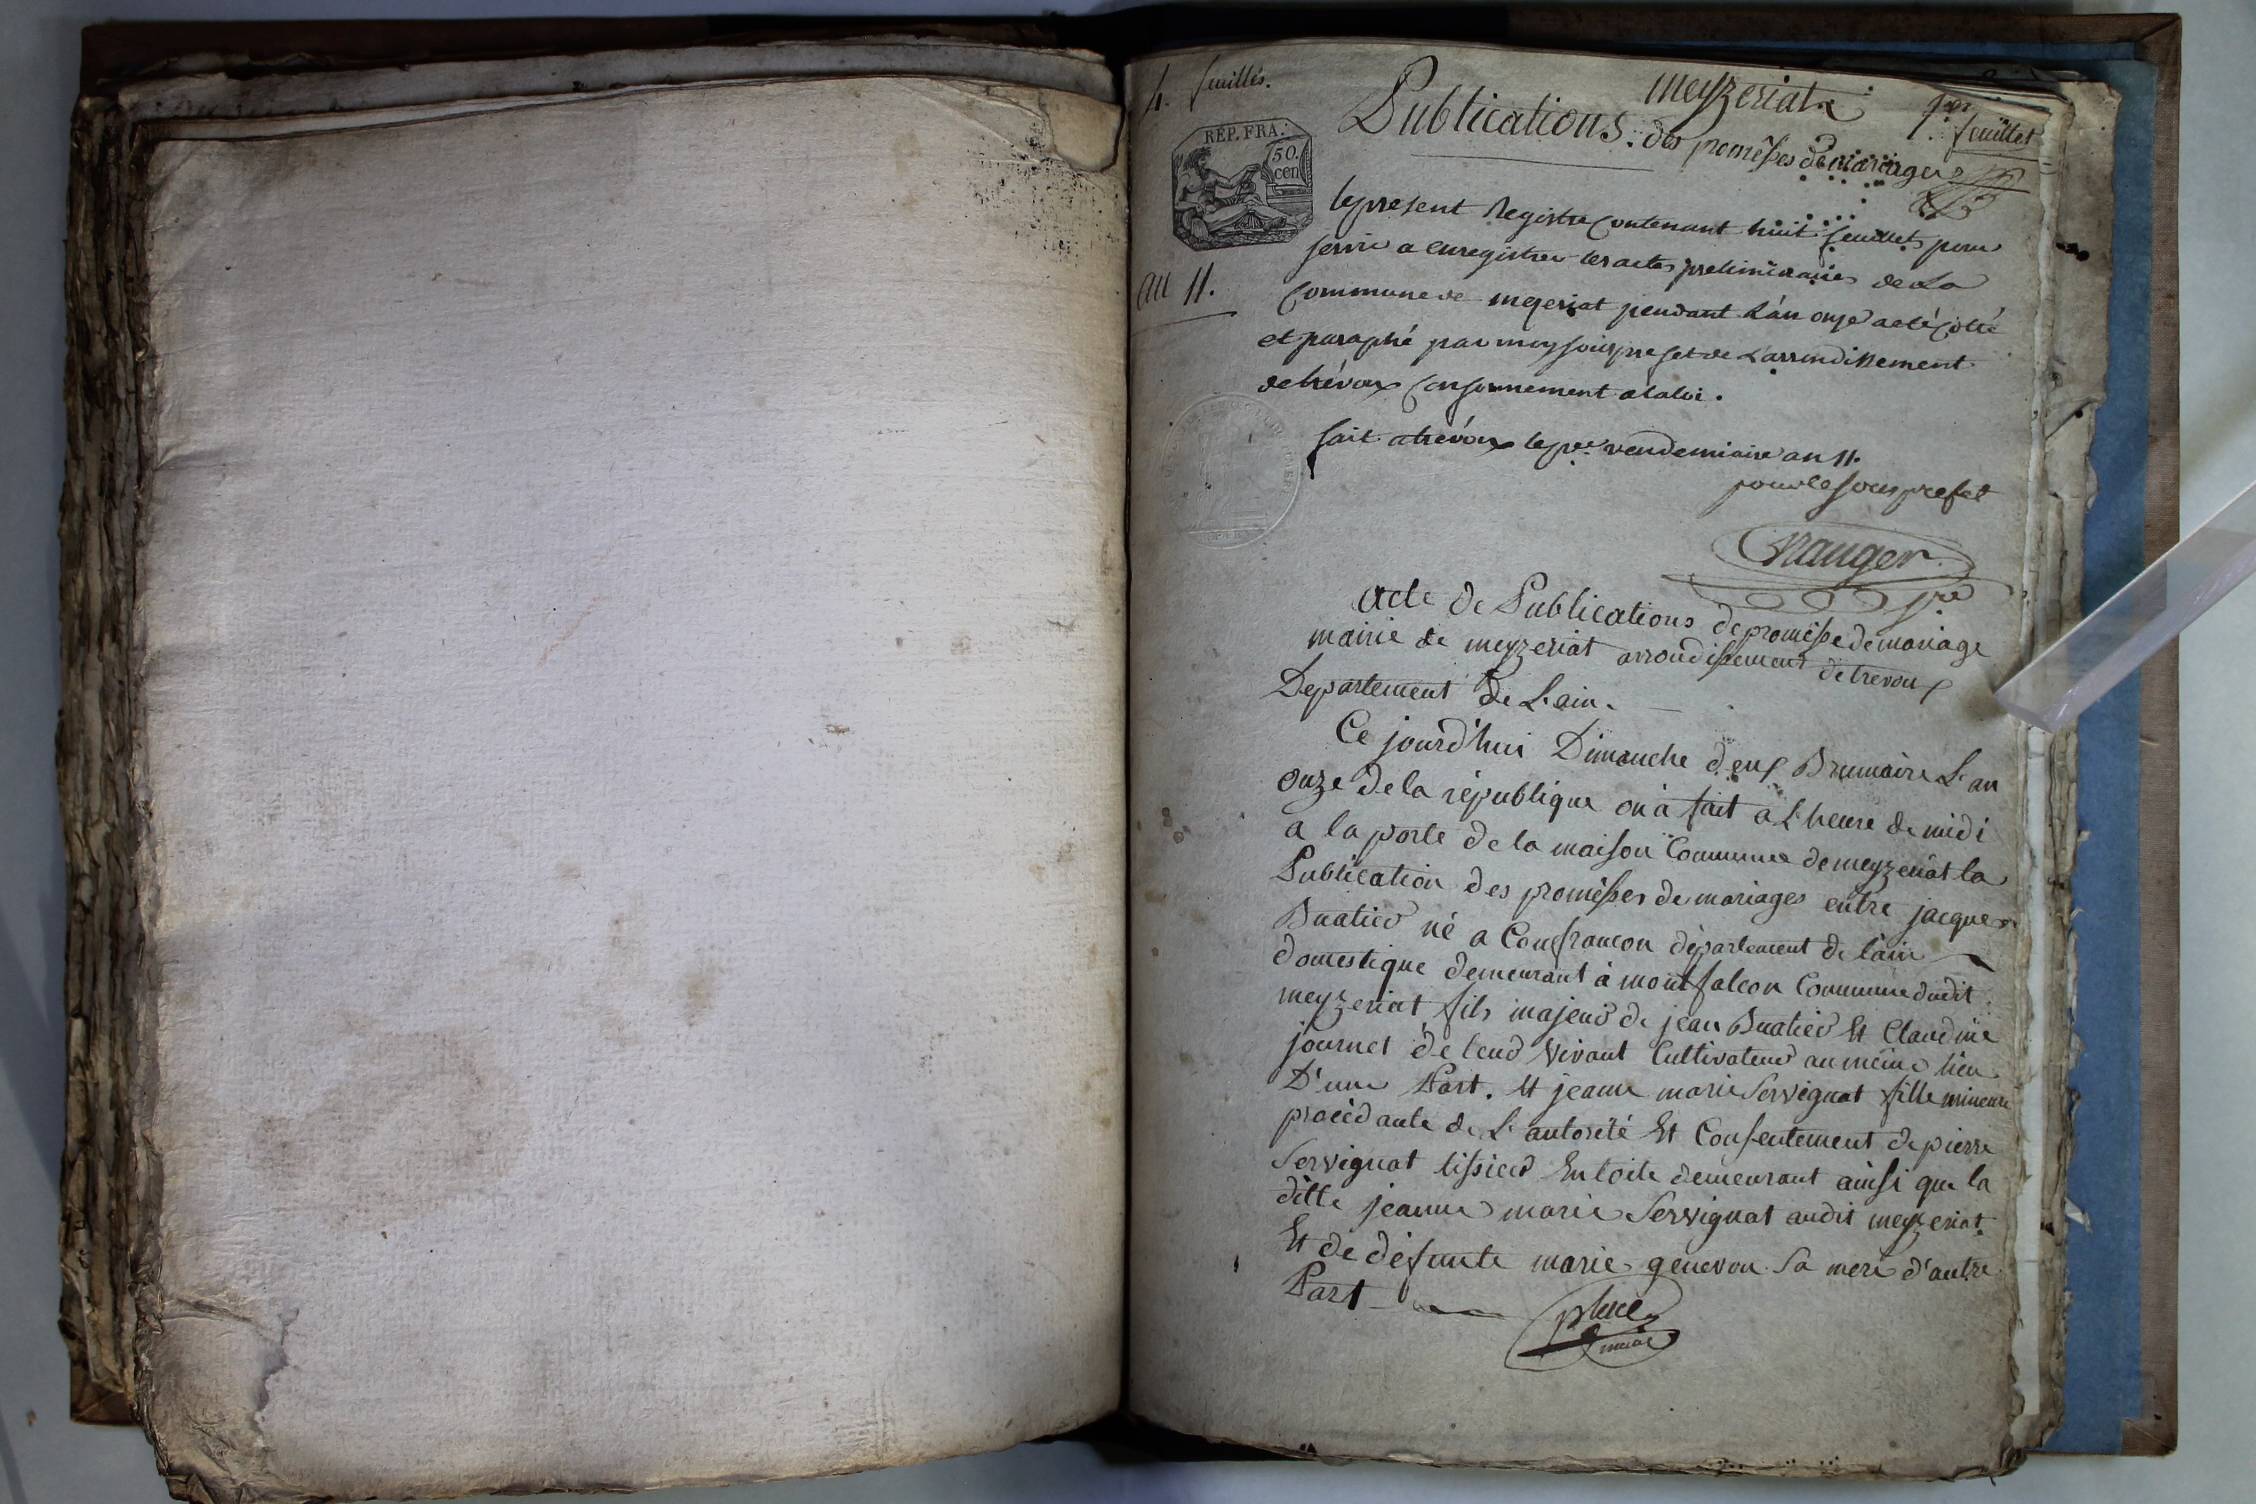 4. feuilles.
meyzeriat
1er feuillet
Publications des promesses de mariages
RÉP. FRA.
50. cen
le present Registre contenant huit feuillets pour
servir a enregistrer les actes preliminaires de La
an 11.
Commune de mezeriat pendant L'an onze a eté cotté
et paraphé par moy souspréfet de L'arrondissement
de trévoux conformement a la loi.
fait a trévoux le pr. vendemiaire an 11.
pour le sous prefet
Acte de Publications de promesse de mariage
mairie de meyzeriat arrondissement de trevoux
Departement de L'ain.
Ce jourd'hui Dimanche deux Brumaire L'an
onze de la république on à fait a L'heure de midi
a la porte de la maison Commune de meyzeriat la
Publication des promesses de mariages entre jacques
Buatier né a Confrancon département de l'ain
domestique demeurant à montfalcon Commune dudit
meyzeriat fils majeur de jean Buatier Et Claudine
journet de leur vivant Cultivateur au même lieu
D'une Part. Et jeanne marie Servignat fille mineure
procédante de L'autorité Et Consentement de pierre
Servignat tissier En toile demeurant ainsi que la
ditte jeanne marie Servignat audit meyzeriat.
Et de défunte marie genevon sa mere d'autre
Part
maire